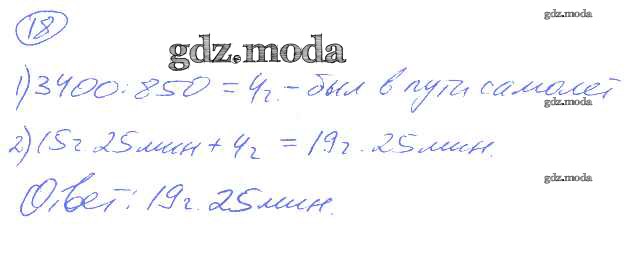 18
gdz.moda
gdz.moda
1) 3400 : 850 = 4г. - был в пути самолет
gdz.moda
2) 15г 25мин + 4г = 19г. 25мин.
gdz.moda
Ответ: 19г. 25мин.